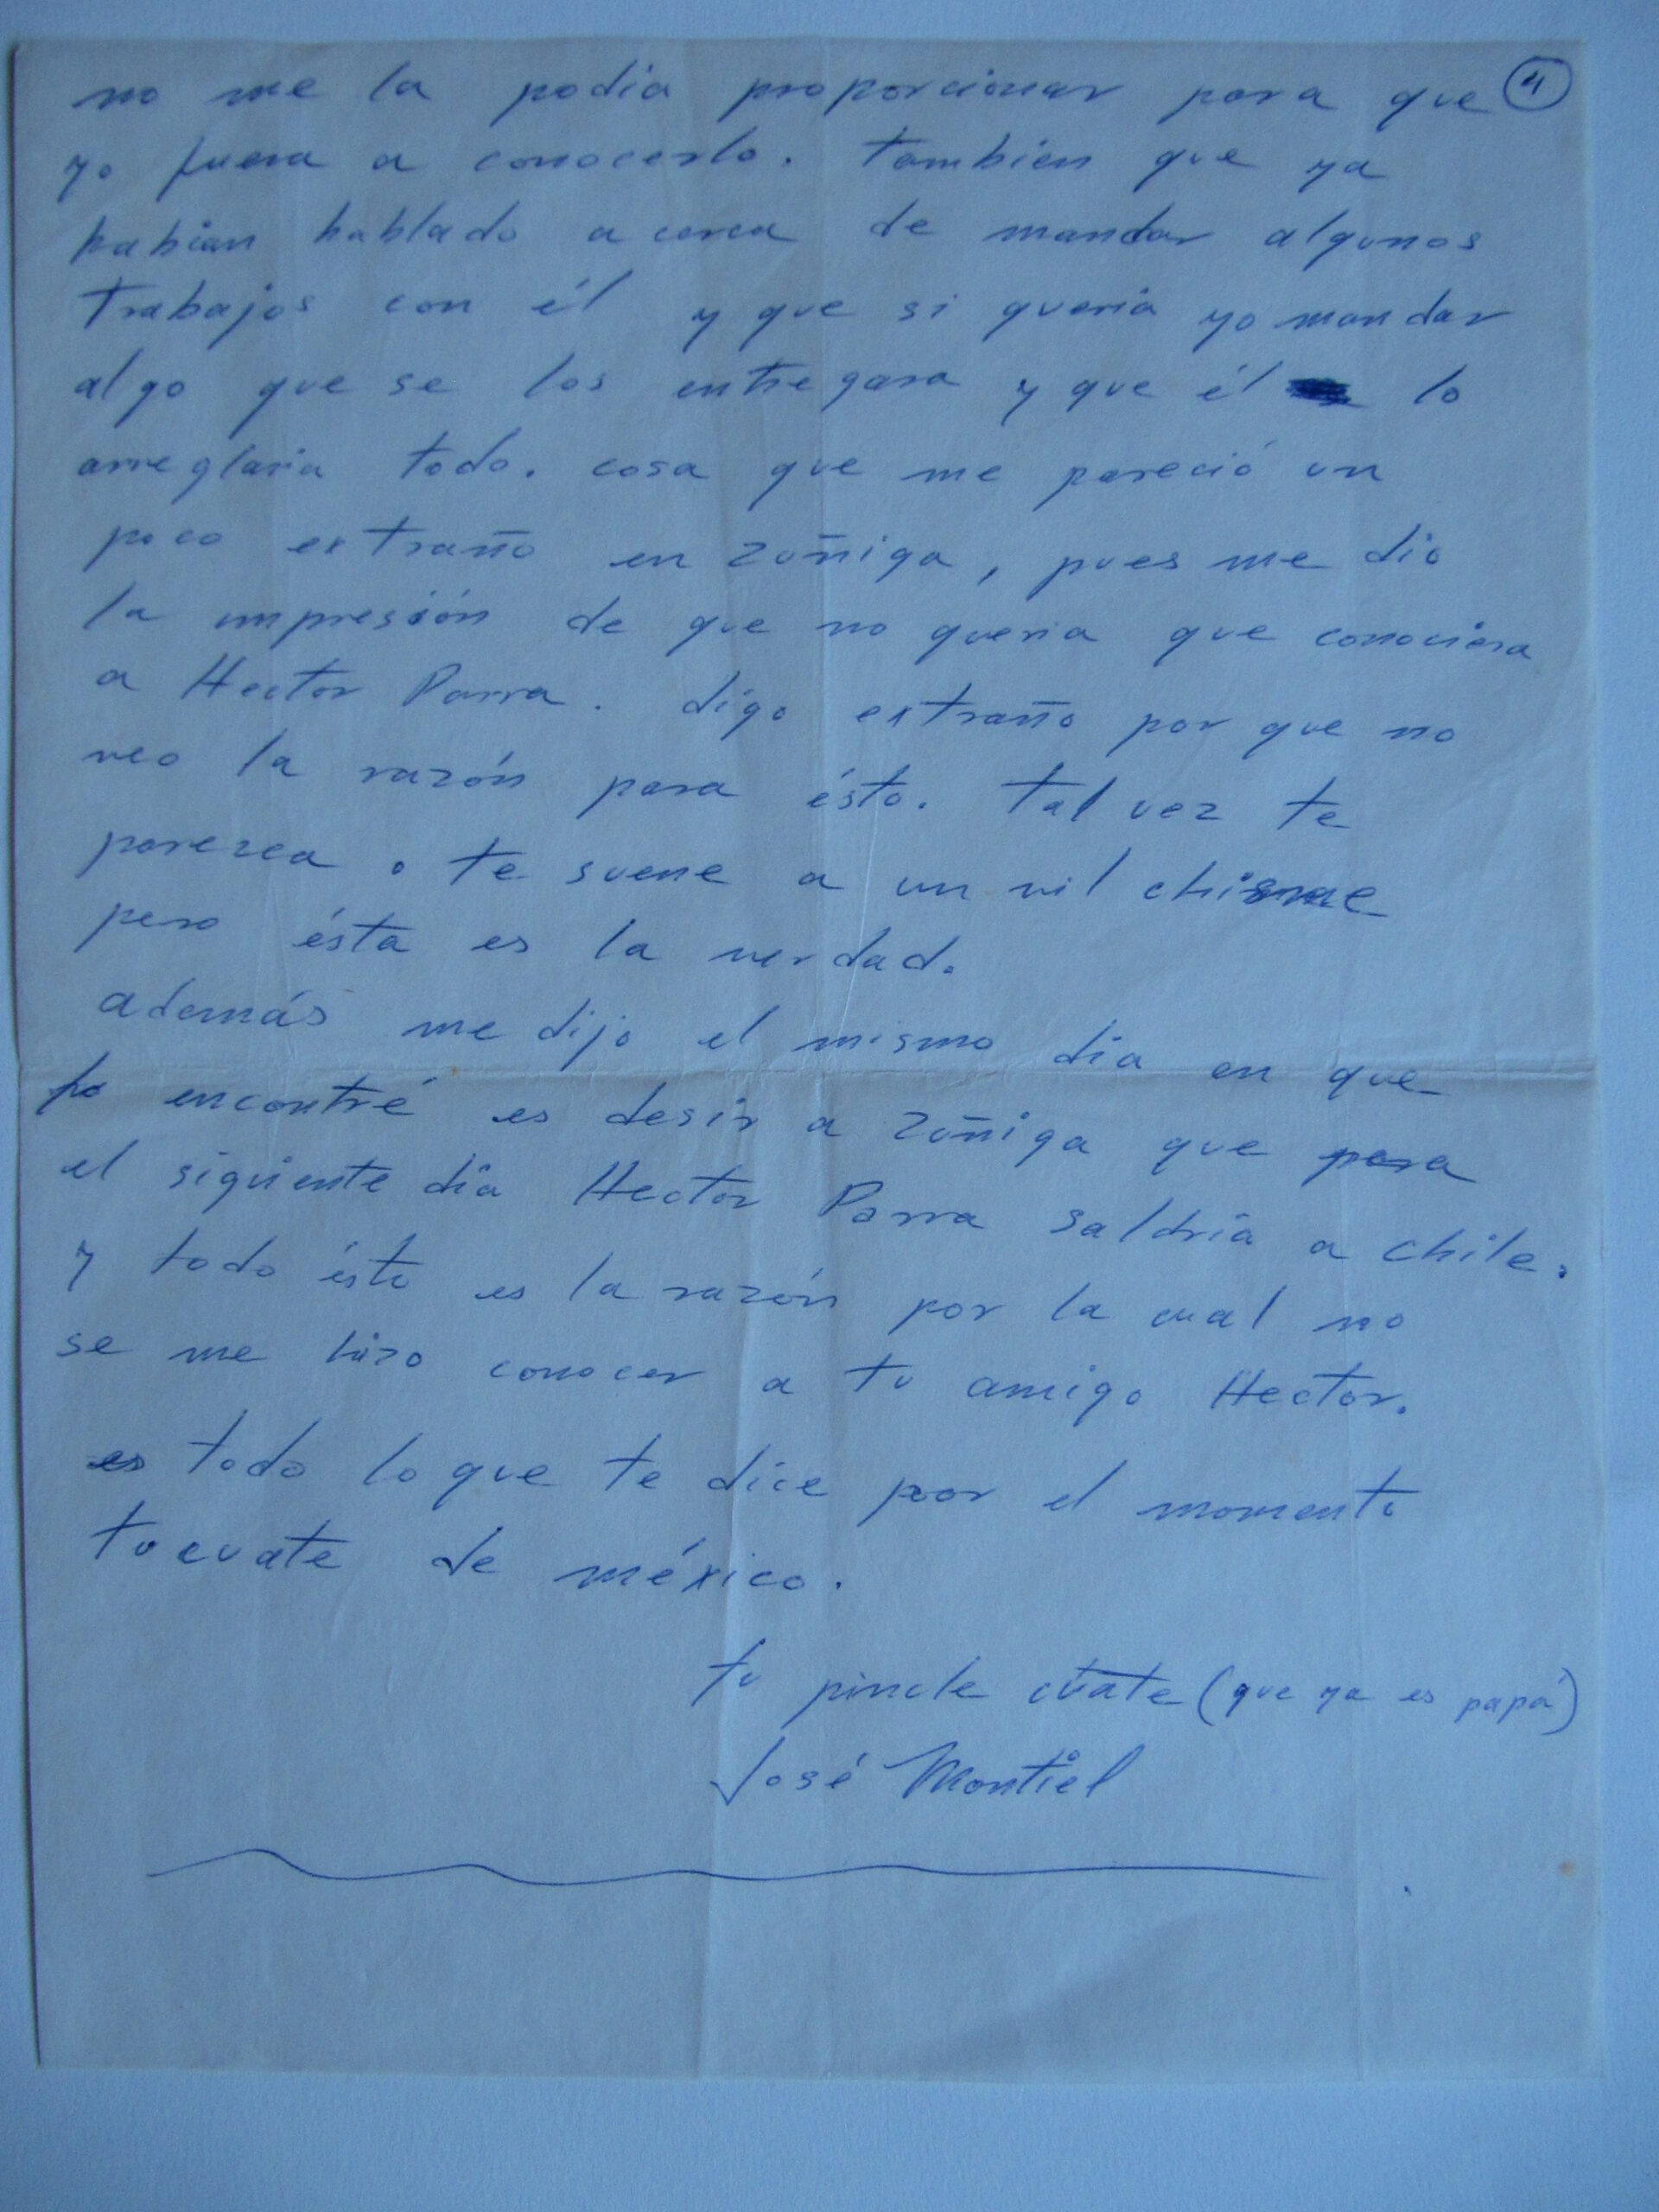 no me la podia proporcionar para que 4
yo fuera a conocerlo. tambien que ya
habian hablado a cerca de mandar algunos
trabajos con él y que si queria yo mandar
algo que se los entregara y que él lo
arreglaria todo. cosa que me pareció un
poco extraño en zuñiga, pues me dio
la impresión de que no queria que conociera
a Hector Parra. digo extraño por que no
veo la razón para ésto. tal vez te
parezca o te suene a un vil chisme
pero ésta es la verdad.
además me dijo el mismo dia en que
lo encontré es desir a zuñiga que para
el siguiente dia Hector Parra saldria a chile.
y todo ésto es la razón por la cual no
se me hizo conocer a tu amigo Hector.
es todo lo que te dice por el momento
tu cuate de méxico.
tu pinche cuate (que ya es papá)
José Montiel